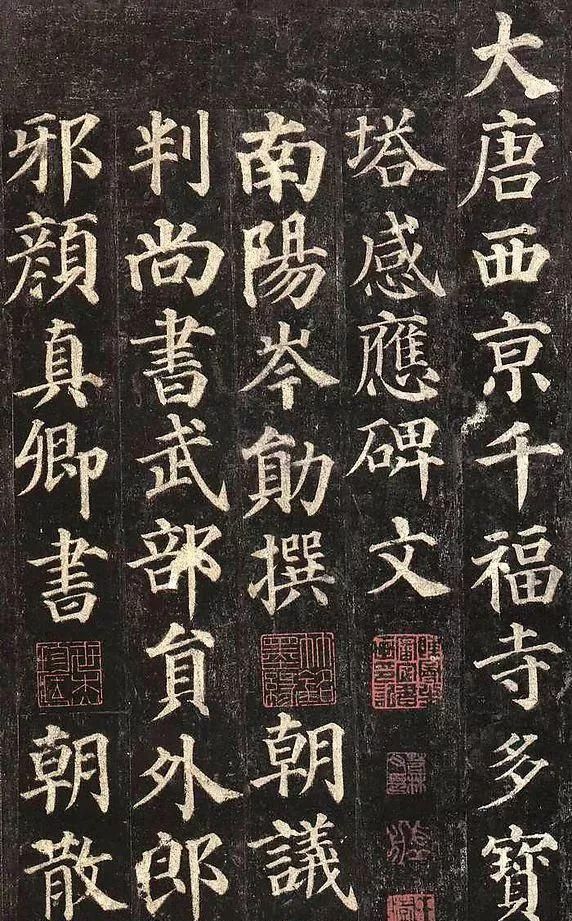 大唐西亰千福寺多寶
塔感應碑文
南陽岑勛撰 朝議
判尚書武部貟外郎
邪顏真卿書 朝散